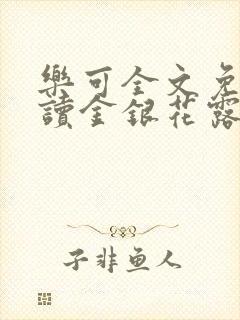 樂可全文免
讀金銀花露
子非鱼人